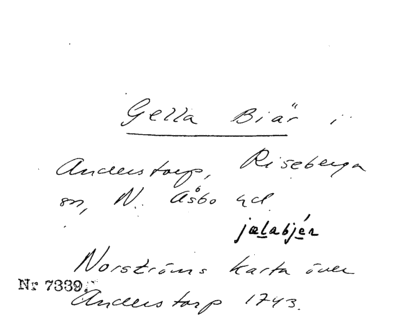 Gella Biär i
Anderstorp, Riseberga
sn, N. Åsbo hd.
jælabjér
Norströms karta över
Nr 7339.
Anderstorp 1743.